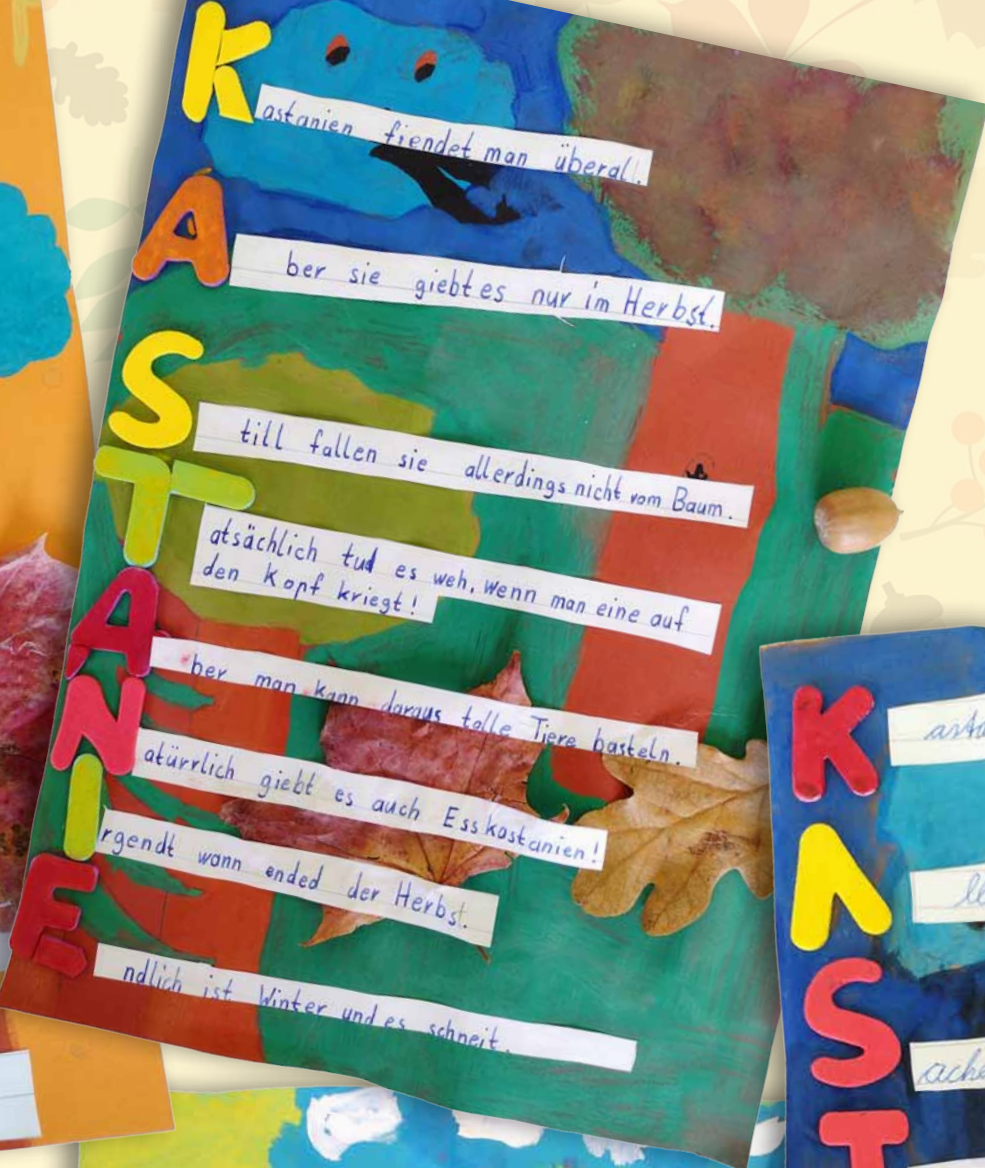 Kastanien fiendet man überal.
Aber sie giebt es nur im Herbst.
Still fallen sie allerdings nicht vom Baum.
Tatsächlich tud es weh, wenn man eine auf
den Kopf kriegt!
Aber man kann daraus tolle Tiere basteln.
Natürrlich giebt es auch Esskastanien!
Irgendt wann ended der Herbst.
Endlich ist Winter und es schneit.
K
A
S
T